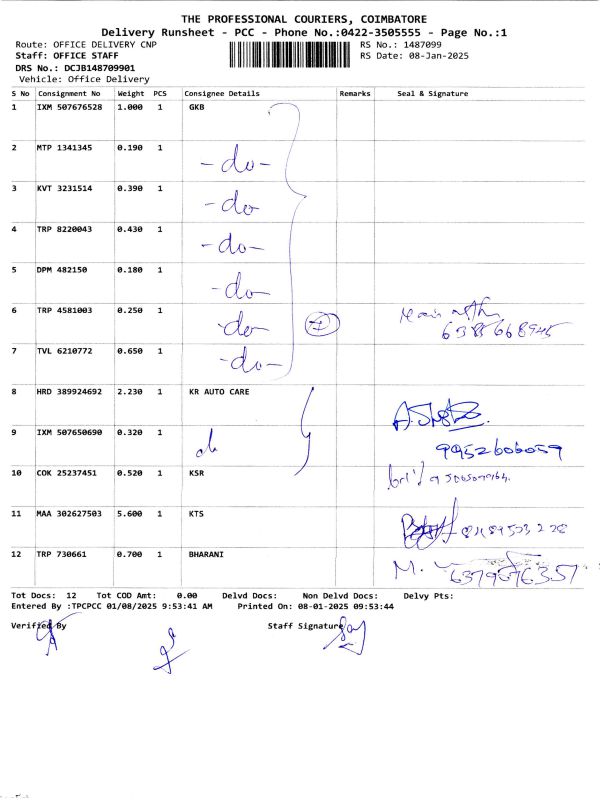 THE PROFESSIONAL COURIERS, COIMBATORE
Delivery Runsheet - PCC - Phone No.:0422-3505555 - Page No.:1
Route: OFFICE DELIVERY CNP RS No.: 1487099
Staff: OFFICE STAFF RS Date: 08-Jan-2025
DRS No.: DCJB148709901
Vehicle: Office Delivery
S No Consignment No Weight PCS Consignee Details Remarks Seal & Signature
1 IXM 507676528 1.000 1 GKB
2 MTP 1341345 0.190 1 -do-
3 KVT 3231514 0.390 1 -do
4 TRP 8220043 0.430 1 -do-
5 DPM 482150 0.180 1 -do-
6 TRP 4581003 0.250 1 -do- 7
7 TVL 6210772 0.650 1 -do-
8 HRD 389924692 2.230 1 KR AUTO CARE
9 IXM 507650690 0.320 1 do 9952606059
10 COK 25237451 0.520 1 KSR
11 MAA 302627503 5.600 1 KTS
12 TRP 730661 0.700 1 BHARANI M. 6379076357
Tot Docs: 12 Tot COD Amt: 0.00 Delvd Docs: Non Delvd Docs: Delvy Pts:
Entered By :TPCPCC 01/08/2025 9:53:41 AM Printed On: 08-01-2025 09:53:44
Verified By Staff Signature